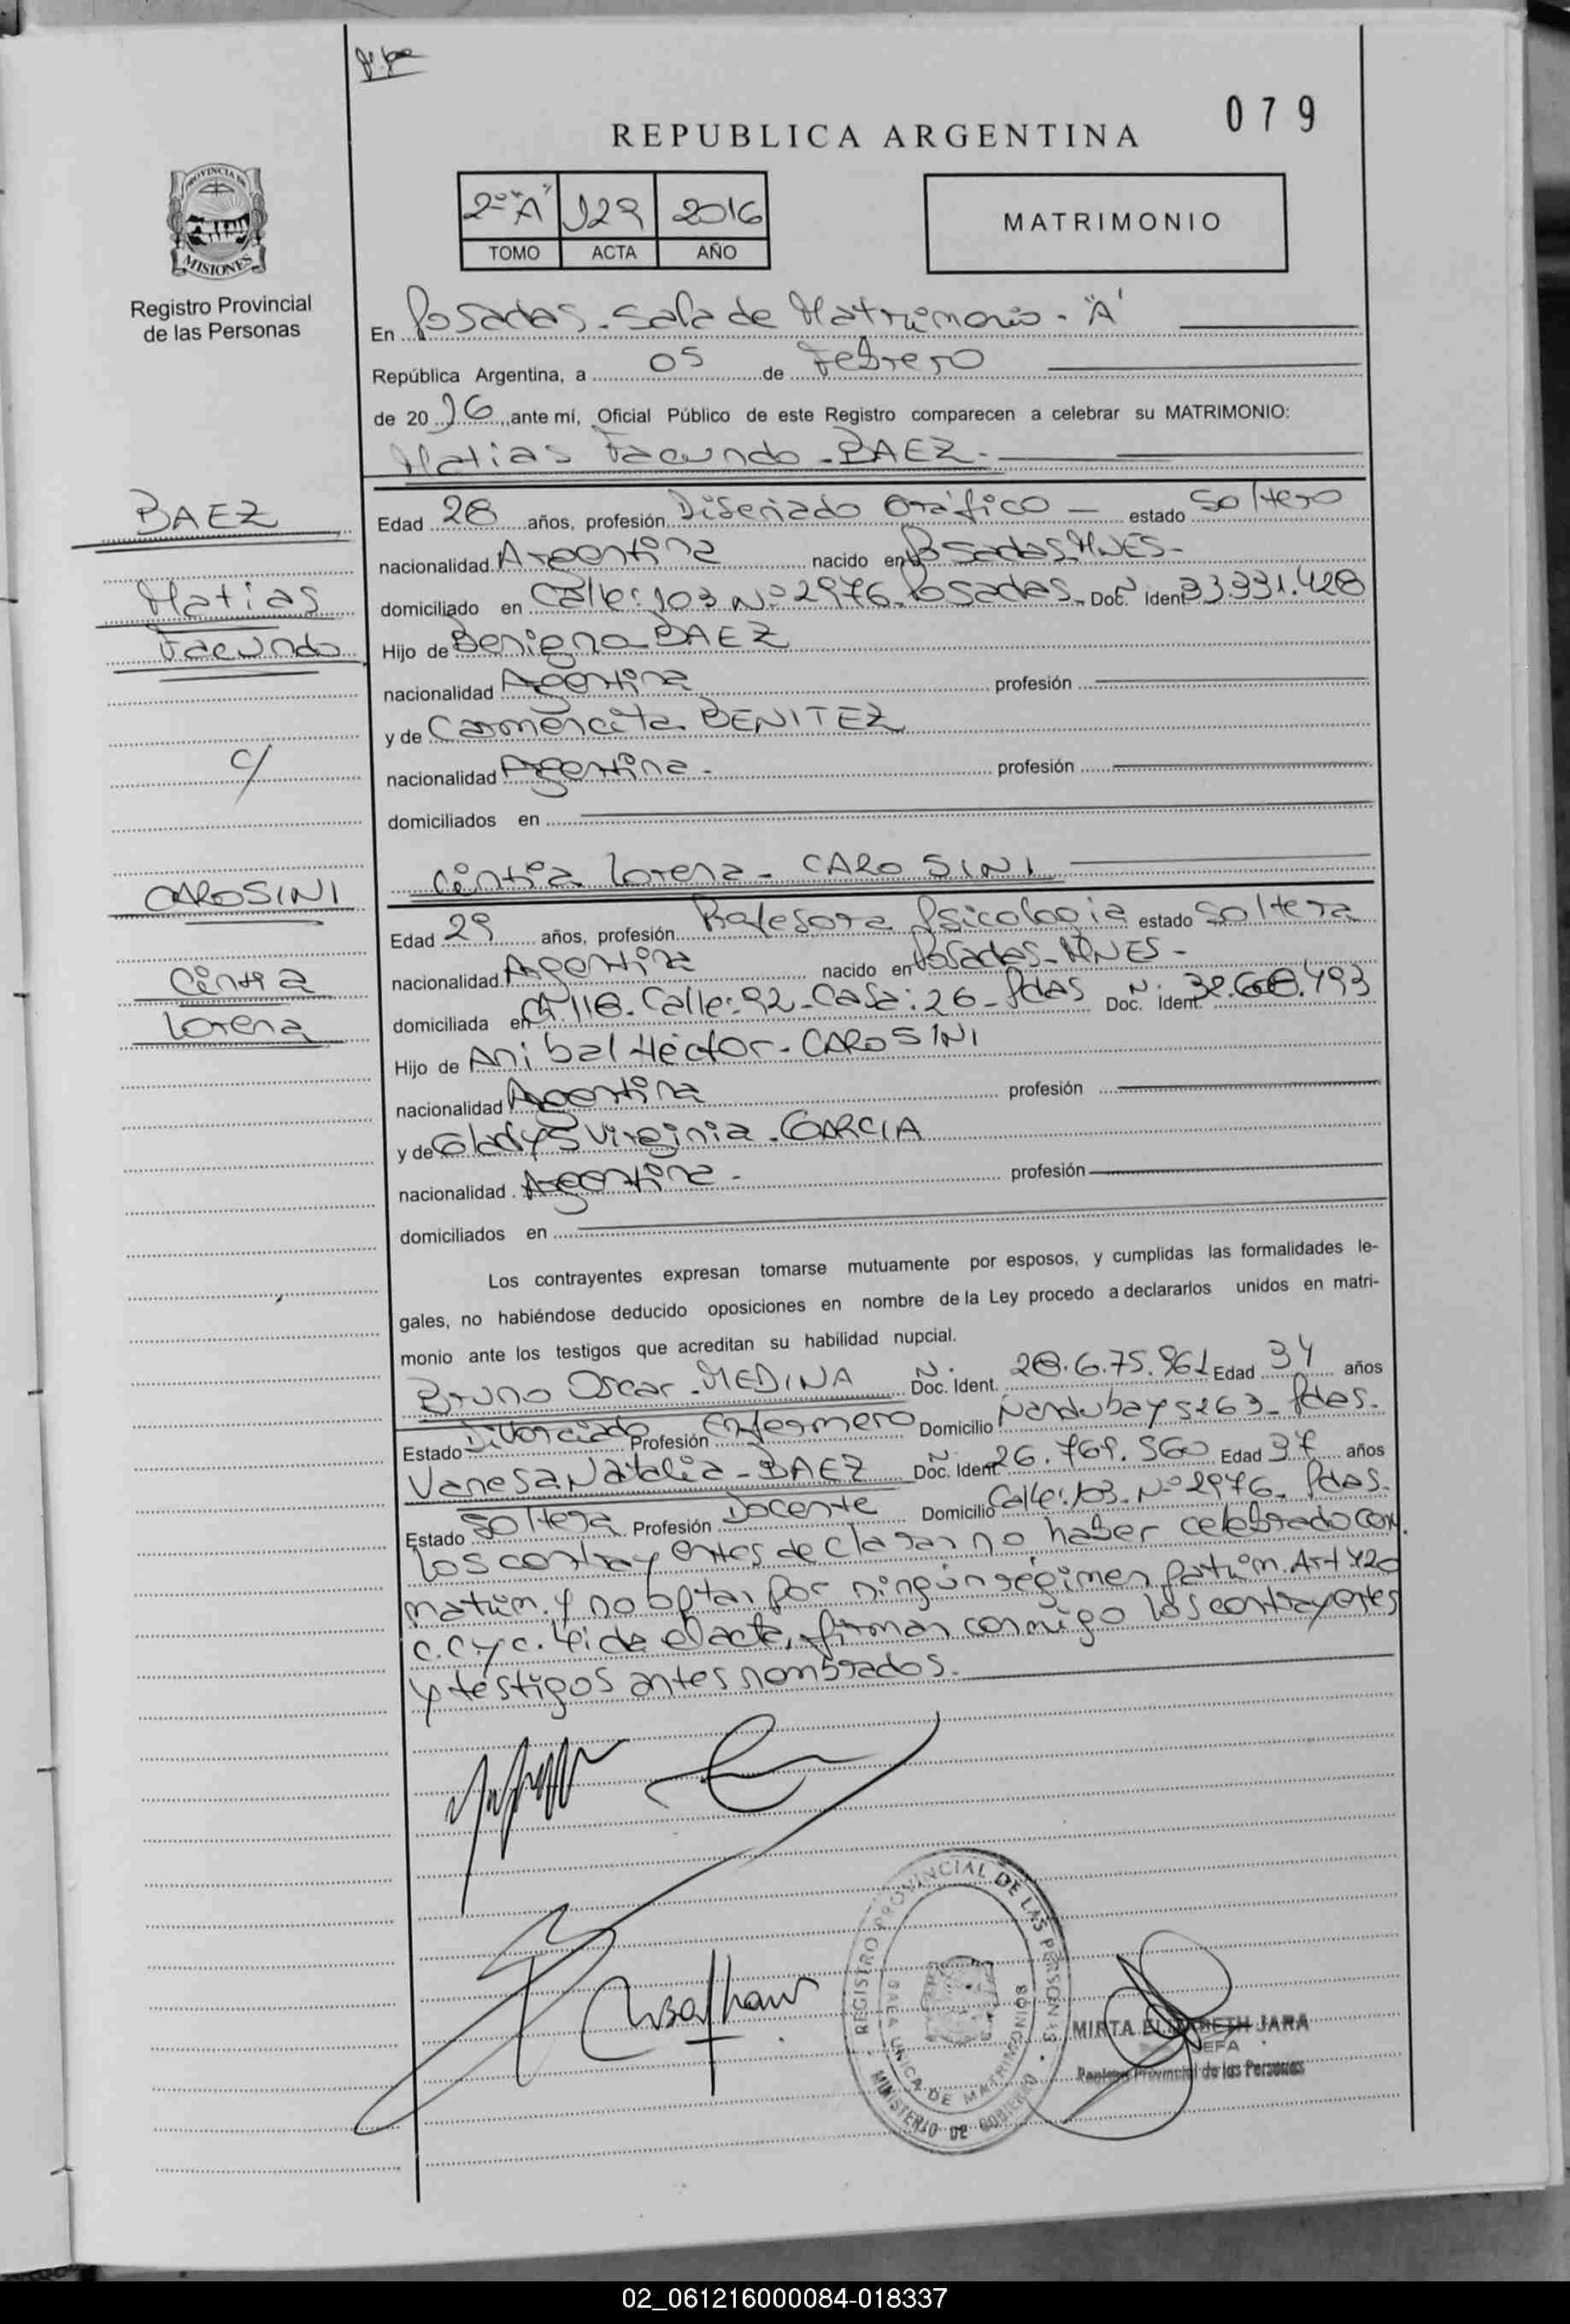 079
REPUBLICA ARGENTINA
PROVINCIA DE
MISIONES
Registro Provincial
de las Personas
2º "A" 129 2016
TOMO ACTA AÑO
MATRIMONIO
En Posadas - Sala de Matrimonio - "A"
República Argentina, a 05 de Febrero
de 2016, ante mí, Oficial Público de este Registro comparecen a celebrar su MATRIMONIO:
Matias Facundo - BAEZ -
BAEZ
Matias
Facundo
c/
CAROSINI
Cintia
Lorena
Edad 28 años, profesión Diseñado Gráfico - estado Soltero
nacionalidad Argentina nacido en Posadas MNES -
domiciliado en Calle: 103 Nº 2976 - Posadas - Doc. Ident. 33.331.428
Hijo de Benigno BAEZ
nacionalidad Argentina profesión
y de Carmencita BENITEZ
nacionalidad Argentina - profesión
domiciliados en
Cintia Lorena - CAROSINI
Edad 29 años, profesión Profesora Psicologia estado Soltera
nacionalidad Argentina nacido en Posadas - MNES -
domiciliada en Ch 118 - Calle: 92 - Casa: 26 - Pdas Doc. Ident.
Hijo de Anibal Héctor - CAROSINI
nacionalidad Argentina profesión
y de Gladys Virginia - GARCIA
nacionalidad Argentina - profesión
domiciliados en
Los contrayentes expresan tomarse mutuamente por esposos, y cumplidas las formalidades le-
gales, no habiéndose deducido oposiciones en nombre de la Ley procedo a declararlos unidos en matri-
monio ante los testigos que acreditan su habilidad nupcial.
Bruno Oscar - MEDINA Doc. Ident. 28.6.75.961 Edad 34 años
Estado Divorciado Profesión Enfermero Domicilio Ñandubay 5263 - Pdas.
Vanesa Natalia - BAEZ Doc. Ident. 26.769.560 Edad 37 años
Estado Soltera Profesión Docente Domicilio Calle: 103 - Nº 2976 - Pdas.
Los contrayentes declaran no haber celebrado con.
matrim. y no optar por ningún régimen patrim. Art 420
C.C.y C. Leida el acta, firman conmigo los contrayentes
y testigos antes nombrados.
REGISTRO PROVINCIAL DE LAS PERSONAS
SALA UNICA DE MATRIMONIOS
MINISTERIO DE GOBIERNO
MIRTA ELIZABETH JARA
JEFA
Registro Provincial de las Personas
02_061216000084-018337